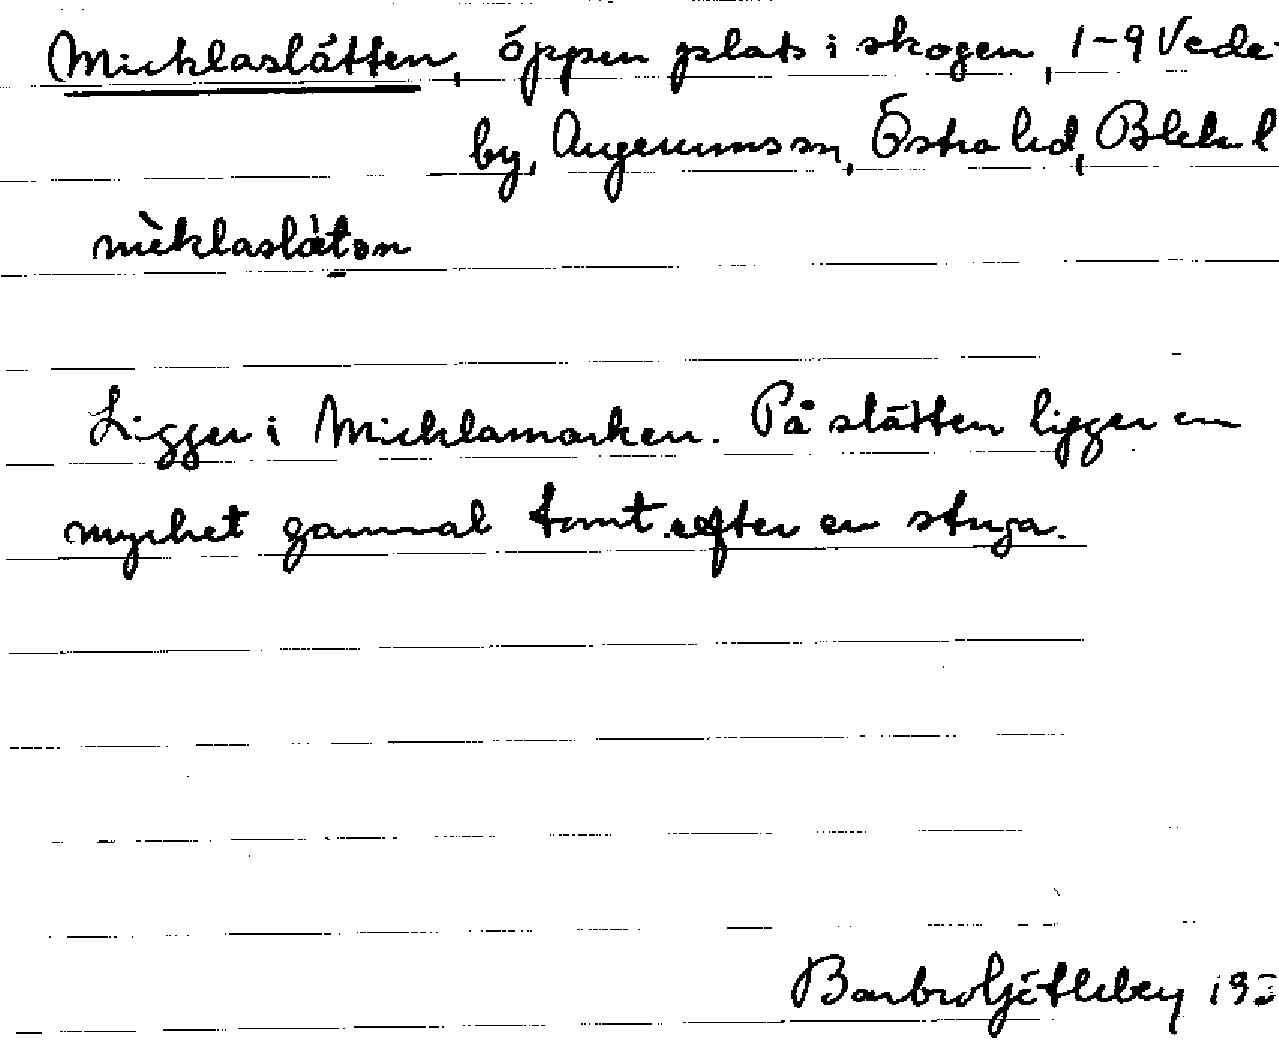 Micklaslätten, öppen plats i skogen, 1-9 Vede-
by, Augerums sn, Östra hd, Blek l
mèklaslæ̀tən
Ligger i Micklamarken. På slätten ligger en
mycket gammal tomt efter en stuga.
Barbro